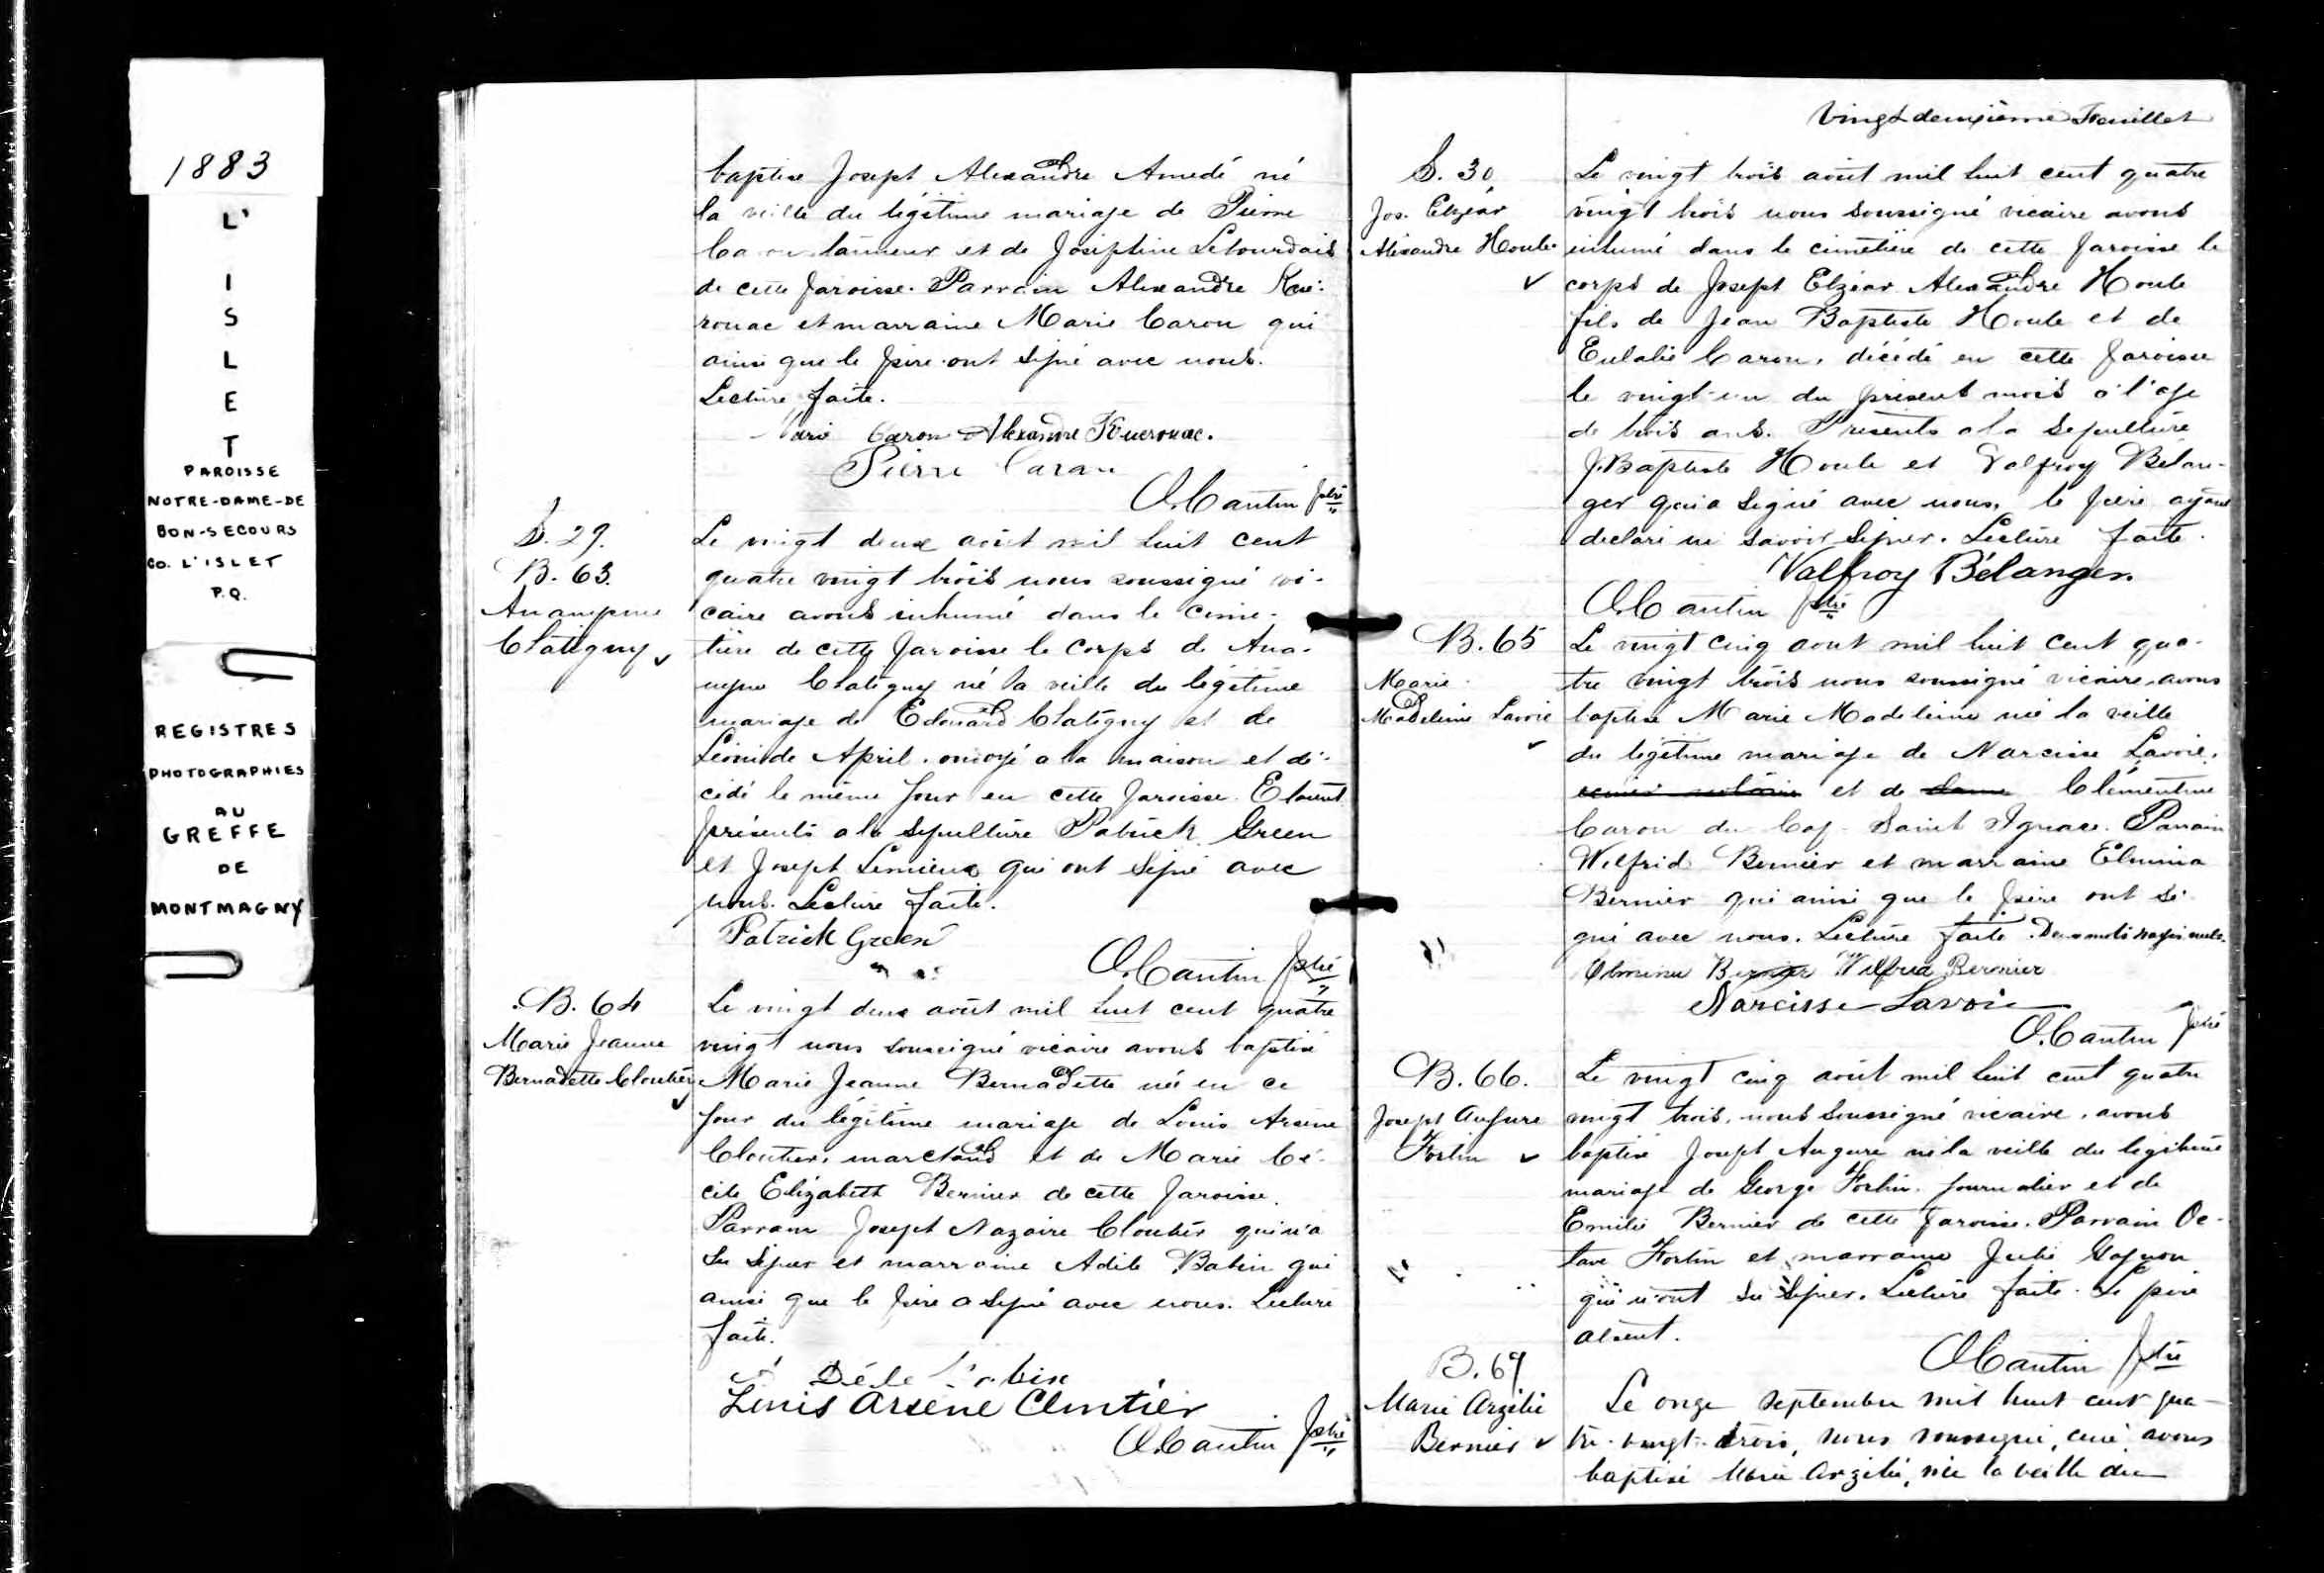 1883
L'
I
S
L
E
T
PAROISSE
NOTRE-DAME-DE
BON-SECOURS
CO. L'ISLET
P.Q.
REGISTRES
PHOTOGRAPHIES
AU
GREFFE
DE
MONTMAGNY
baptisé Joseph Alexandre Amedé né
la veille du légitime mariage de Pierre
Caron tanneur et de Joséphine Letourdais
de cette paroisse. Parrain Alexandre Kué-
rouac et marraine Marie Caron qui
ainsi que le père ont signé avec nous.
Lecture faite.
Marie Caron Alexandre Kuerouac.
Pierre Caron
O. Cantin ptre
S. 29.
B. 63.
Anonyme
Chatigny
Le vingt deux août mil huit cent
quatre vingt trois nous soussigné vi-
caire avons inhumé dans le cime-
tière de cette paroisse le corps de Ano-
nyme Chatigny né la veille du légitime
mariage de Edouard Chatigny et de
Léonide April. ondoyé a la maison et dé-
cédé le même jour en cette paroisse. Etaient
présents a la sépulture Patrick Green
et Joseph Lemieux qui ont signé avec
nous. Lecture faite.
Patrick Green
O. Cantin ptre
B. 64
Marie Jeanne
Bernadette Cloutier
Le vingt deux août mil huit cent quatre
vingt nous soussigné vicaire avons baptisé
Marie Jeanne Bernadette née en ce
jour du légitime mariage de Louis Arsène
Cloutier, marchand et de Marie Cé-
cile Elizabeth Bernier de cette paroisse.
Parrain Joseph Nazaire Cloutier qui n'a
su signer et marraine Adèle Babin qui
ainsi que le père a signé avec nous. Lecture
faite.
Louis Arsène Cloutier
O. Cantin ptre
Vingt deuxième Feuillet
S. 30
Jos. Elzéar
Alexandre Houle
Le vingt trois août mil huit cent quatre
vingt trois nous soussigné vicaire avons
inhumé dans le cimetière de cette paroisse le
corps de Joseph Elzéar Alexandre Houle
fils de Jean Baptiste Houle et de
Eulalie Caron, décédé en cette paroisse
le vingt-un du présent mois à l'age
de trois ans. Présents a la sépulture
J. Baptiste Houle et Valfroy Bélan-
ger qui a signé avec nous, le père ayant
déclaré ne savoir signer. Lecture faite.
Valfroy Bélanger.
O. Cantin ptre
B. 65
Marie
Madeleine Lavoie
Le vingt cinq aout mil huit cent qua-
tre vingt trois nous soussigné vicaire avons
baptisé Marie Madeleine née la veille
du légitime mariage de Narcisse Lavoie,
et de dame Clémentine
Caron du Cap Saint Ignace. Parrain
Wilfrid Bernier et marraine Elmina
Bernier qui ainsi que le père ont si-
gné avec nous. Lecture faite. Deux mots rayés nuls.
Elmina Bernier Wilfrid Bernier
Narcisse Lavoie
O. Cantin ptre
B. 66.
Joseph Augure
Fortin
Le vingt cinq août mil huit cent quatre
vingt trois, nous soussigné vicaire, avons
baptisé Joseph Augure né la veille du légitime
mariage de George Fortin, journalier et de
Emilie Bernier de cette paroisse. Parrain Oc-
tave Fortin et marraine Julie Gagnon
qui n'ont su signer. Lecture faite. Le père
absent.
O. Cantin ptre
B. 67
Marie Arzélie
Bernier
Le onze septembre mil huit cent qua-
tre-vingt-trois, nous soussigné, curé avons
baptisé Marie Arzélie, née la veille du